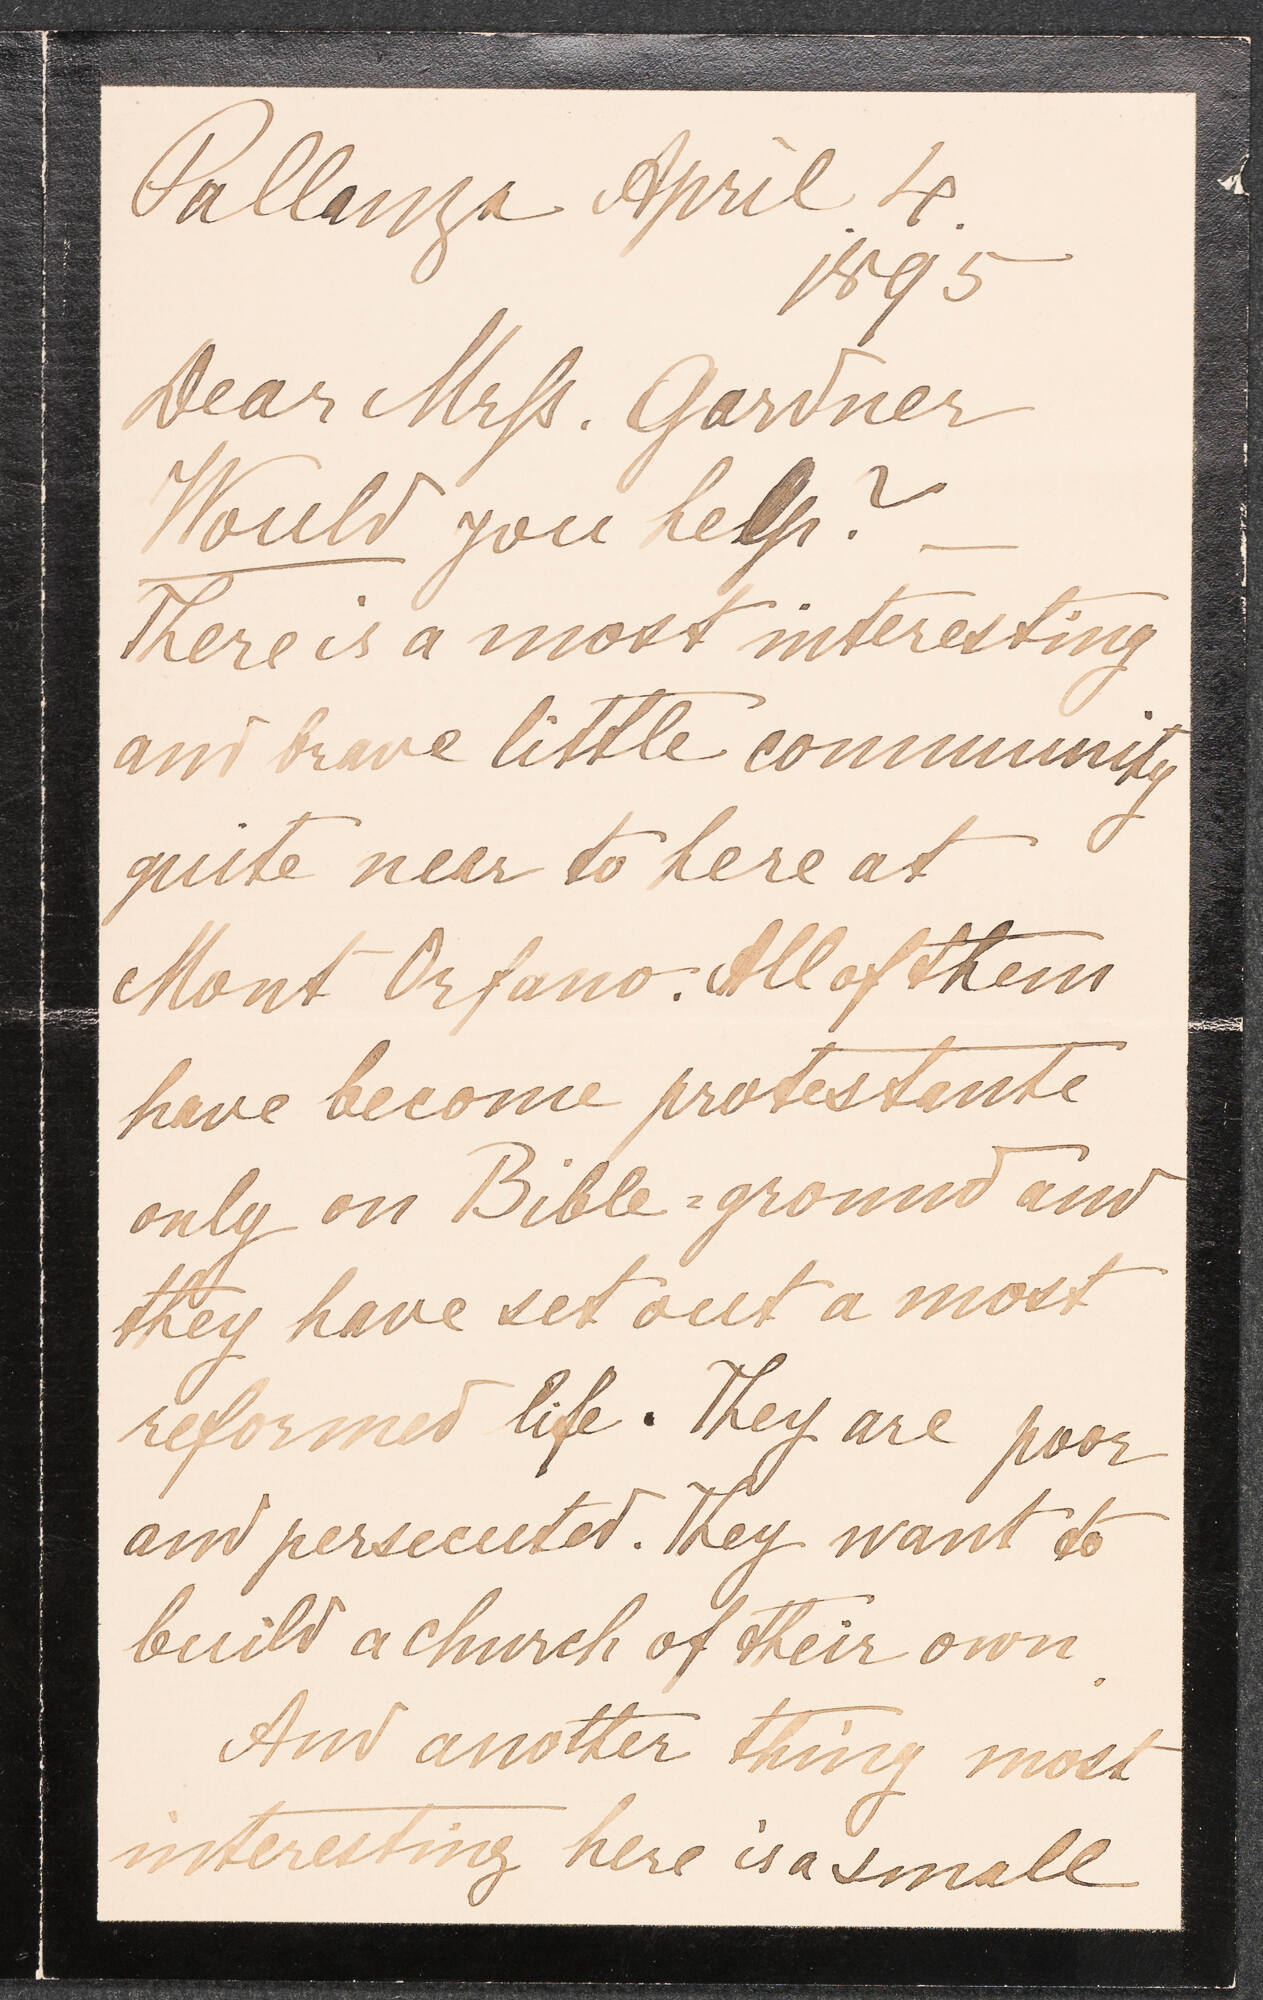 Pallanza April 4.
1895
Dear Mrs. Gardner
Would you help? —
There is a most interesting
and brave little community
quite near to here at
Mont Orfano. All of them
have become protestante
only on Bible=ground and
they have set out a most
reformed life. They are poor
and persecuted. They want to
build a church of their own.
And another thing most
interesting here is a small